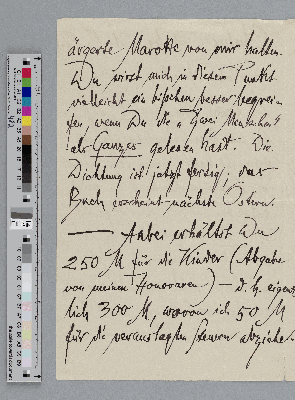 ärgerte Marotte von mir halten.
Du wirst mich in diesem Punkt
vielleicht ein bißchen besser begrei-
fen, wenn Du die „Zwei Menschen"
als Ganzes gelesen hast. Die
Dichtung ist jetzt fertig, das
Buch erscheint nächste Ostern.
— Anbei erhältst Du
250 M für die Kinder (Abgabe
von meinen Honoraren) — d. h. eigent-
lich 300 M, wovon ich 50 M
für die verauslagten Steuern abziehe.